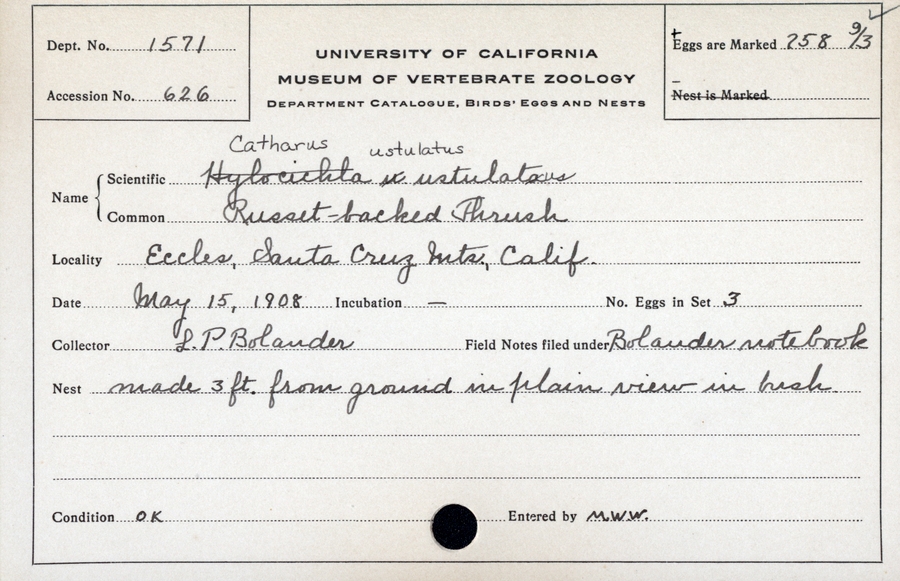 Dept. No. 1571
Accession No. 626
UNIVERSITY OF CALIFORNIA
MUSEUM OF VERTEBRATE ZOOLOGY
DEPARTMENT CATALOGUE, BIRDS' EGGS AND NESTS
Eggs are Marked 258 9/3
Nest is Marked
Catharus ustulatus
Name Scientific Hylocichla u ustulatus
Common Russet-backed Thrush
Locality Eccles, Santa Cruz Mts., Calif.
Date May 15, 1908 Incubation — No. Eggs in Set 3
Collector L.P. Bolander Field Notes filed under Bolander notebook
Nest made 3 ft. from ground in plain view in bush
Condition OK Entered by M.W.W.